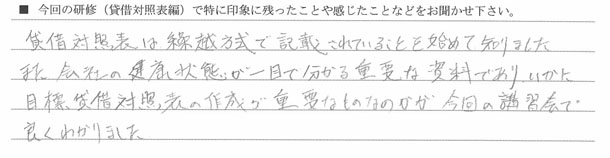 ■ 今回の研修（貸借対照表編）で特に印象に残ったことや感じたことなどをお聞かせ下さい。
貸借対照表は繰越方式で記載されていることを始めて知りました
また会社の健康状態が一目で分かる重要な資料であり、いかに
目標貸借対照表の作成が重要なものなのかが今回の講習会で
良くわかりました